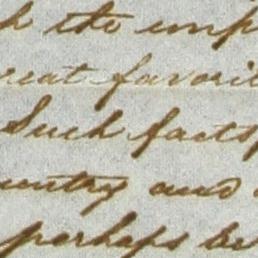 h the imp
reat favori
Such facts,
untry and
perhaps be